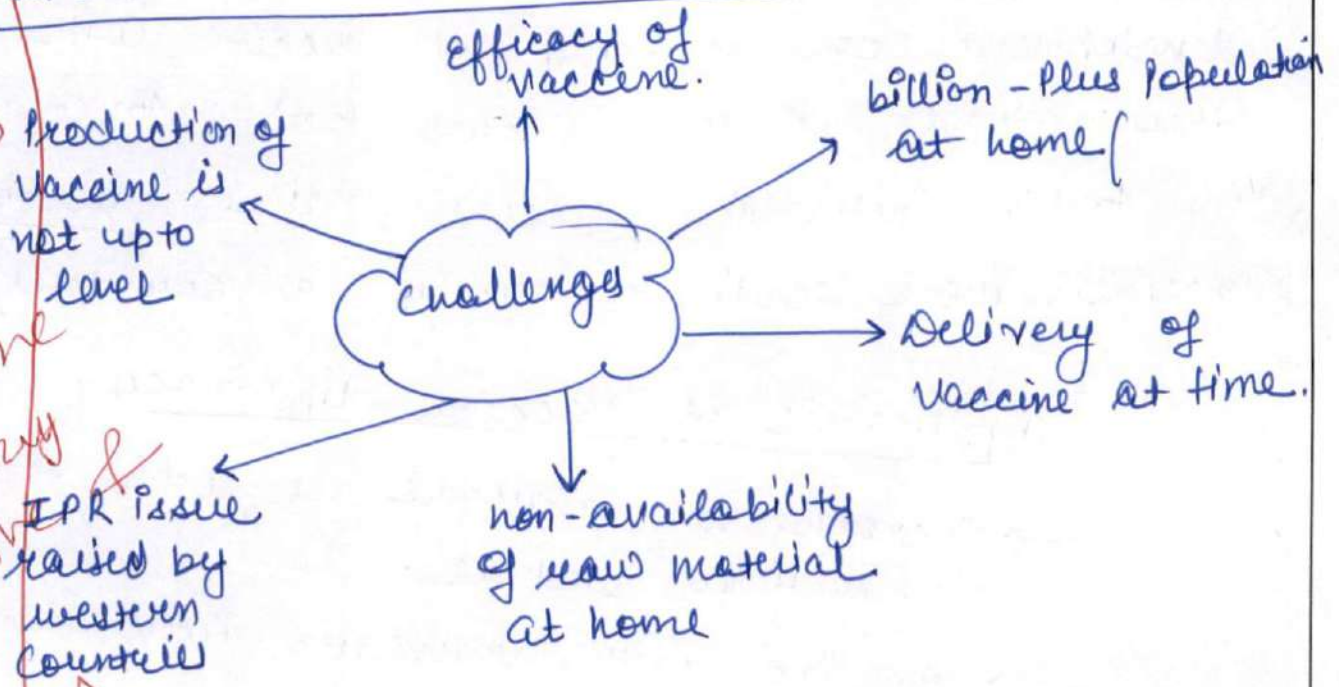 Efficacy of
vaccine.
billion-Plus Population
at home (
Production of
vaccine is
not upto
level
Challenges
Delivery of
vaccine at time.
IPR issue
raised by
western
Countries
non-availability
of raw material
at home
&